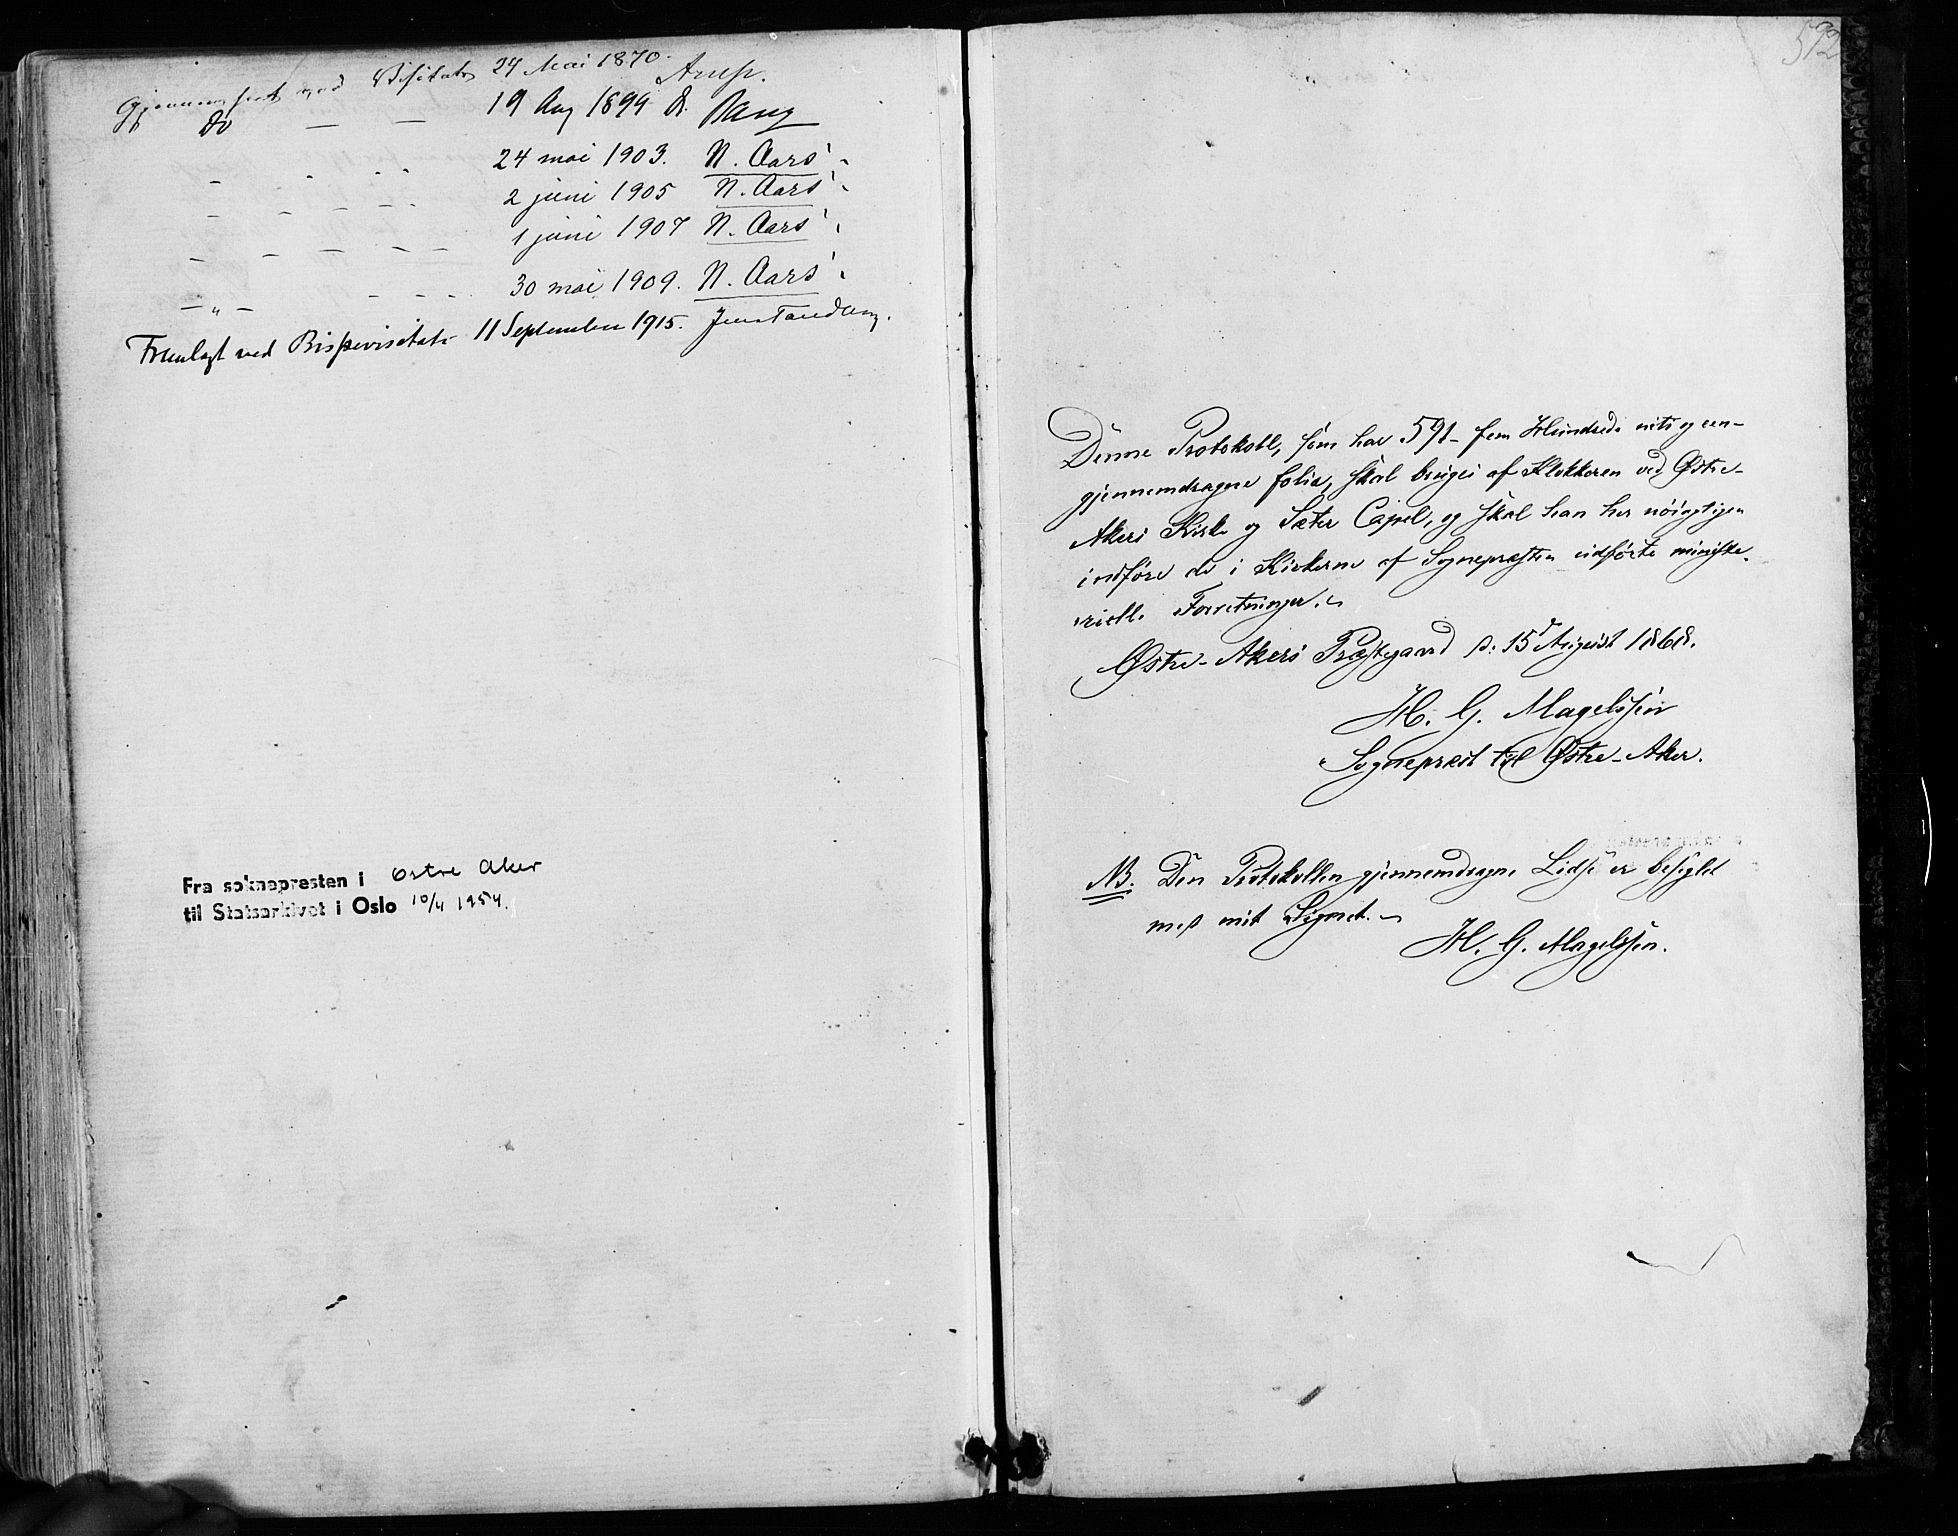 Gjennemseet ved Visitats 24 Mai 1870. Arup.
Do — — 19 Aug 1899 A. Bang
- - - - 24 mai 1903. N. Aars
- - - - - 2 juni 1905 N. Aars
- - - - - 1 juni 1907 N. Aars
— " — - - - 30 mai 1909. N. Aars
Fremlagt ved Bispevisitats 11 September 1915. Jens Tandberg.
Fra soknepresten i Østre Aker
til Statsarkivet i Oslo 10/4 1954.
592
Denne Protokoll, som har 591 - fem Hundrede niti og een -
gjennemdragne folia, skal bruges af Klokkeren ved Østre-
Akers Kirke og Sæter Capel, og skal han her nøiagtigen
indføre de i Kirkerne af Sognepræsten udførte ministe-
rielle Forretninger.
Østre-Akers Præstegaard d: 15 August 1868.
H. G. Magelssen
Sognepræst til Østre-Aker.
NB. Den Protokollen gjennemdragne Lidse er beseglet
med mit Signet.
H. G. Magelssen.